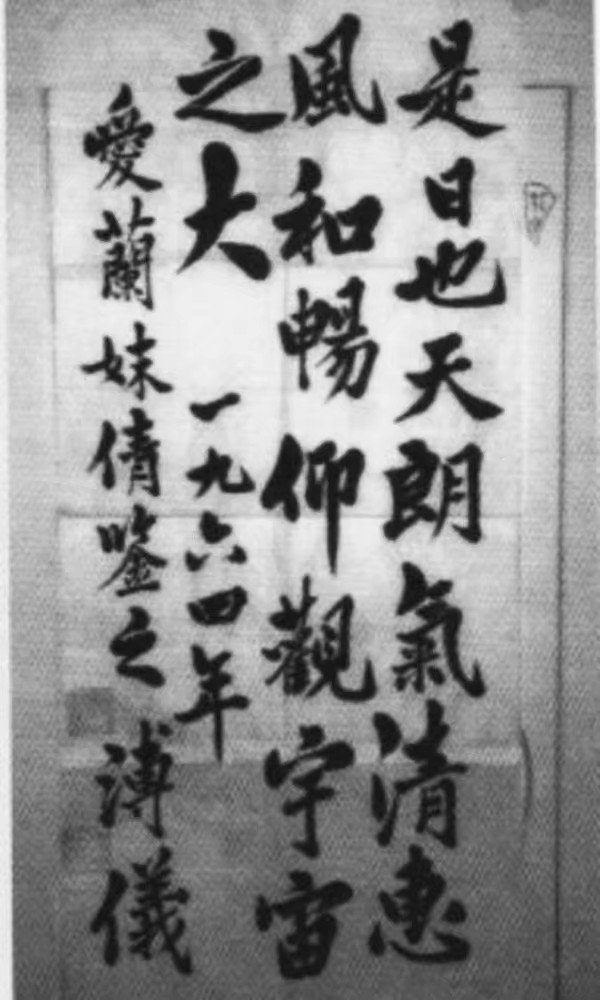 是日也天朗氣清惠
風和暢仰觀宇宙
之大
一九六四年
愛蘭妹倩鑒之
溥儀